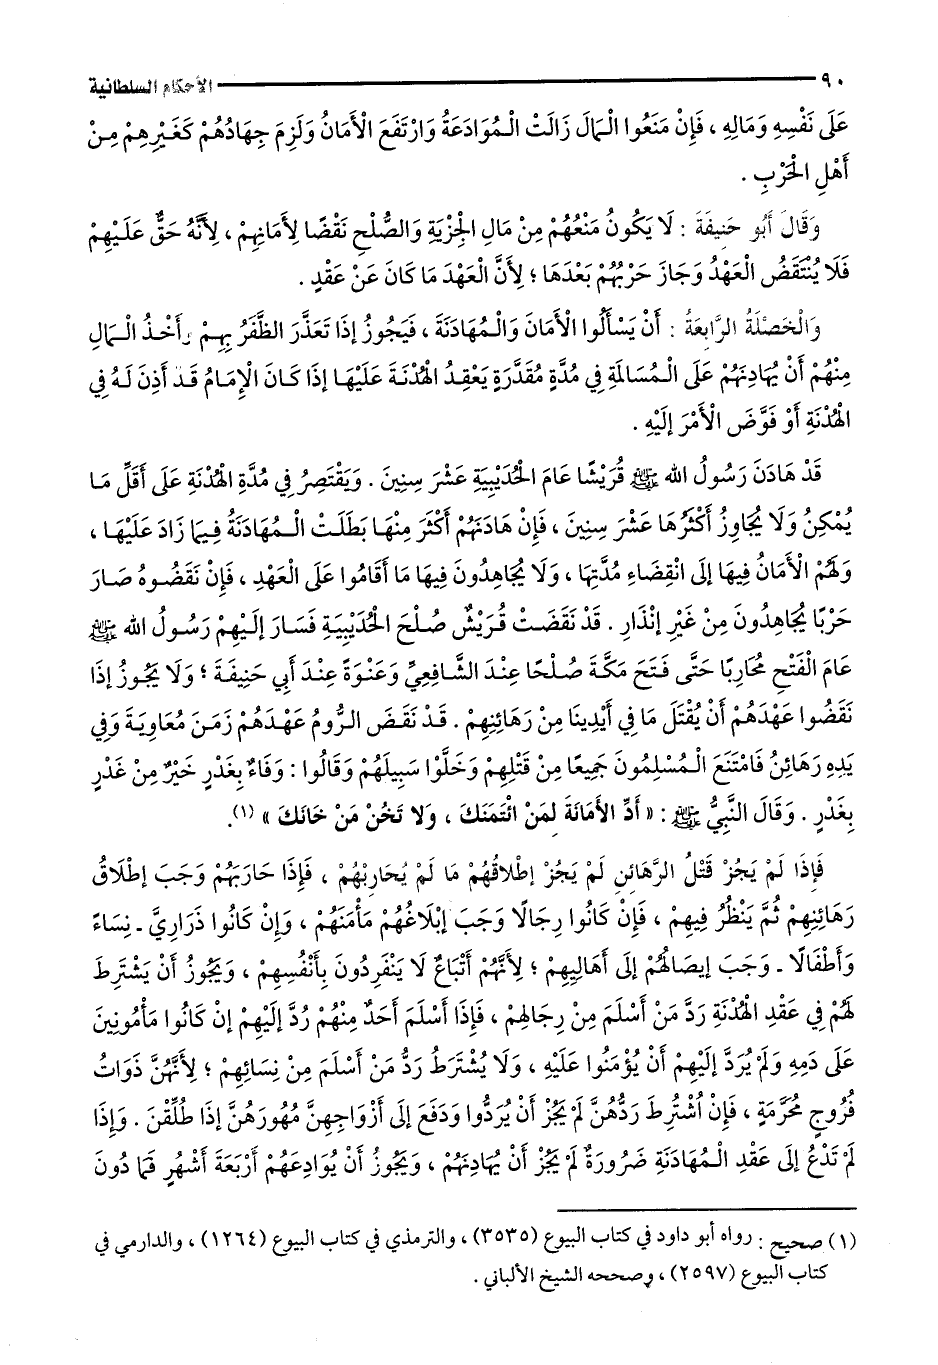 ٩٠ الأحكام السلطانية
عَلَى نَفْسِهِ وَمَالِهِ ، فَإِنْ مَنَعُوا الْمَالَ زَالَتْ الْمُوَادَعَةُ وَارْتَفَعَ الْأَمَانُ وَلَزِمَ جِهَادُهُمْ كَغَيْرِهِمْ مِنْ
أَهْلِ الْحَرْبِ .
وَقَالَ أَبُو حَنِيفَةَ : لَا يَكُونُ مَنْعُهُمْ مِنْ مَالِ الْجِزْيَةِ وَالصُّلْحِ نَقْضًا لِأَمَانِهِمْ ، لِأَنَّهُ حَقٌّ عَلَيْهِمْ
فَلَا يُنْتَقَضُ الْعَهْدُ وَجَازَ حَرْبُهُمْ بَعْدَهَا ؛ لِأَنَّ الْعَهْدَ مَا كَانَ عَنْ عَقْدٍ .
وَالْخَصْلَةُ الرَّابِعَةُ : أَنْ يَسْأَلُوا الْأَمَانَ وَالْمُهَادَنَةَ ، فَيَجُوزُ إذَا تَعَذَّرَ الظَّفَرُ بِهِمْ وَأَخْذُ الْمَالِ
مِنْهُمْ أَنْ يُهَادِنَهُمْ عَلَى الْمُسَالَمَةِ فِي مُدَّةٍ مُقَدَّرَةٍ يَعْقِدُ الْهُدْنَةَ عَلَيْهَا إذَا كَانَ الْإِمَامُ قَدْ أَذِنَ لَهُ فِي
الْهُدْنَةِ أَوْ فَوَّضَ الْأَمْرَ إلَيْهِ .
قَدْ هَادَنَ رَسُولُ الله ﷺ قُرَيْشًا عَامَ الْحُدَيْبِيَةِ عَشْرَ سِنِينَ . وَيَقْتَصِرُ فِي مُدَّةِ الْهُدْنَةِ عَلَى أَقَلِّ مَا
يُمْكِنُ وَلَا يُجَاوِزُ أَكْثَرُهَا عَشْرَ سِنِينَ ، فَإِنْ هَادَنَهُمْ أَكْثَرَ مِنْهَا بَطَلَتْ الْمُهَادَنَةُ فِيمَا زَادَ عَلَيْهَا ،
وَلَهُمْ الْأَمَانُ فِيهَا إلَى انْقِضَاءِ مُدَّتِهَا ، وَلَا يُجَاهِدُونَ فِيهَا مَا أَقَامُوا عَلَى الْعَهْدِ ، فَإِنْ نَقَضُوهُ صَارَ
حَرْبًا يُجَاهِدُونَ مِنْ غَيْرِ إنْذَارٍ . قَدْ نَقَضَتْ قُرَيْشٌ صُلْحَ الْحُدَيْبِيَةِ فَسَارَ إلَيْهِمْ رَسُولُ الله ﷺ
عَامَ الْفَتْحِ مُحَارِبًا حَتَّى فَتَحَ مَكَّةَ صُلْحًا عِنْدَ الشَّافِعِيِّ وَعَنْوَةً عِنْدَ أَبِي حَنِيفَةَ ؛ وَلَا يَجُوزُ إذَا
نَقَضُوا عَهْدَهُمْ أَنْ يُقْتَلَ مَا فِي أَيْدِينَا مِنْ رَهَائِنِهِمْ . قَدْ نَقَضَ الرُّومُ عَهْدَهُمْ زَمَنَ مُعَاوِيَةَ وَفِي
يَدِهِ رَهَائِنُ فَامْتَنَعَ الْمُسْلِمُونَ جَمِيعًا مِنْ قَتْلِهِمْ وَخَلَّوْا سَبِيلَهُمْ وَقَالُوا : وَفَاءٌ بِغَدْرٍ خَيْرٌ مِنْ غَدْرٍ
بِغَدْرٍ . وَقَالَ النَّبِيُّ ﷺ : « أَدِّ الْأَمَانَةَ لِمَنْ ائْتَمَنَكَ ، وَلا تَخُنْ مَنْ خَانَكَ » (١).
فَإِذَا لَمْ يَجُزْ قَتْلُ الرَّهَائِنِ لَمْ يَجُزْ إطْلَاقُهُمْ مَا لَمْ يُحَارِبُهُمْ ، فَإِذَا حَارَبَهُمْ وَجَبَ إطْلَاقُ
رَهَائِنِهِمْ ثُمَّ يَنْظُرُ فِيهِمْ ، فَإِنْ كَانُوا رِجَالًا وَجَبَ إبْلَاغُهُمْ مَأْمَنَهُمْ ، وَإِنْ كَانُوا ذَرَارِيَّ - نِسَاءً
وَأَطْفَالًا - وَجَبَ إيصَالُهُمْ إلَى أَهَالِيهِمْ ؛ لِأَنَّهُمْ أَتْبَاعٌ لَا يَنْفَرِدُونَ بِأَنْفُسِهِمْ ، وَيَجُوزُ أَنْ يَشْتَرِطَ
لَهُمْ فِي عَقْدِ الْهُدْنَةِ رَدَّ مَنْ أَسْلَمَ مِنْ رِجَالِهِمْ ، فَإِذَا أَسْلَمَ أَحَدٌ مِنْهُمْ رُدَّ إلَيْهِمْ إنْ كَانُوا مَأْمُونِينَ
عَلَى دَمِهِ وَلَمْ يُرَدَّ إلَيْهِمْ أَنْ يُؤْمَنُوا عَلَيْهِ ، وَلَا يُشْتَرَطُ رَدُّ مَنْ أَسْلَمَ مِنْ نِسَائِهِمْ ؛ لِأَنَّهُنَّ ذَوَاتُ
فُرُوجٍ مُحَرَّمَةٍ ، فَإِنْ اُشْتُرِطَ رَدُّهُنَّ لَمْ يَجُزْ أَنْ يُرَدُّوا وَدَفَعَ إلَى أَزْوَاجِهِنَّ مُهُورَهُنَّ إذَا طُلِّقْنَ . وَإِذَا
لَمْ تَدْعُ إلَى عَقْدِ الْمُهَادَنَةِ ضَرُورَةٌ لَمْ يَجُزْ أَنْ يُهَادِنَهُمْ ، وَيَجُوزُ أَنْ يُوَادِعَهُمْ أَرْبَعَةَ أَشْهُرٍ فَمَا دُونَ
(١) صحيح : رواه أبو داود في كتاب البيوع (٣٥٣٥) ، والترمذي في كتاب البيوع (١٢٦٤) ، والدارمي في
كتاب البيوع (٢٥٩٧) ، وصححه الشيخ الألباني .